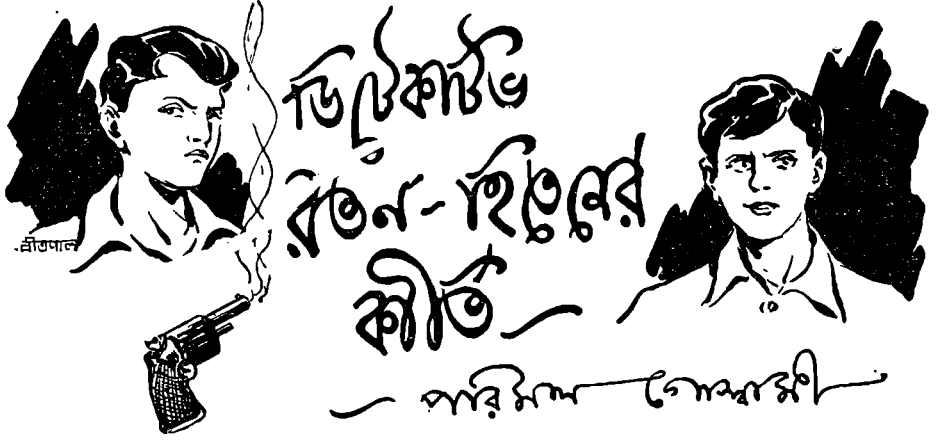 ডিটেকটিভ
রতন-হিতেনের
কীর্তি
পরিমল গোস্বামী